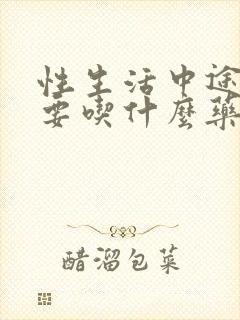 性生活中途
要吃什麼藥
醋溜包菜